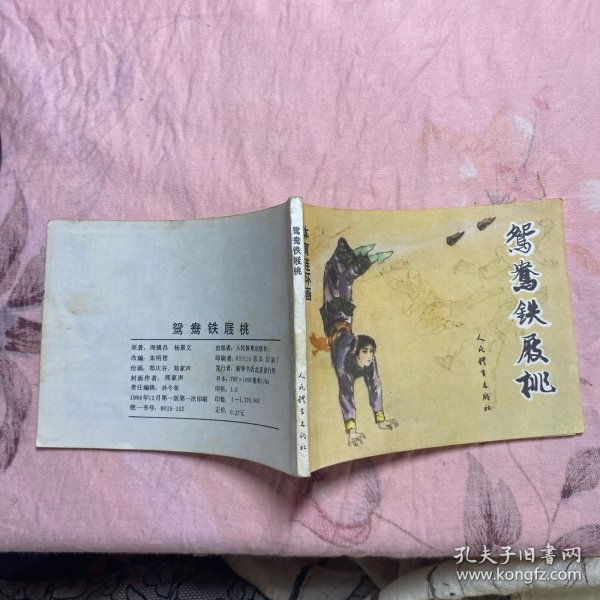 鸳鸯铁屐桃
原著:周镇昌 杨景文
改编:朱明德
绘画:郑庆谷、郑家声
封面作者:郑家声
责任编辑:孙今荣
1984年12月第一版第一次印刷
统一书号:8015·152
出版者:人民体育出版社
印刷者:89920部队印刷厂
发行者:新华书店北京发行所
开本:787×1092毫米1/60
印张:1.5
印数:1—1,220,000
定价:0.27元
鸳鸯铁屐桃
体育连环画
人民体育出版社
鸳鸯铁屐桃
人民体育出版社
孔夫子旧书网
www.kongfz.com